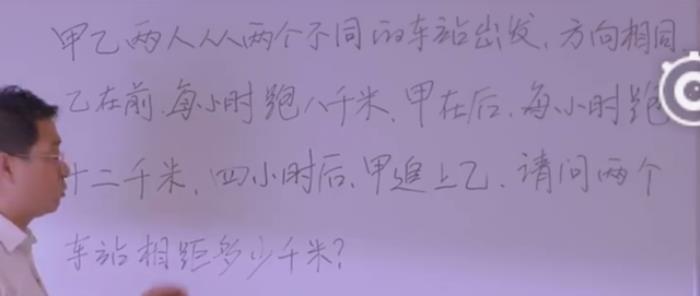 甲乙两人从两个不同的车站出发，方向相同
乙在前，每小时跑八千米，甲在后，每小时跑
十二千米，四小时后，甲追上乙，请问两个
车站相距多少千米？